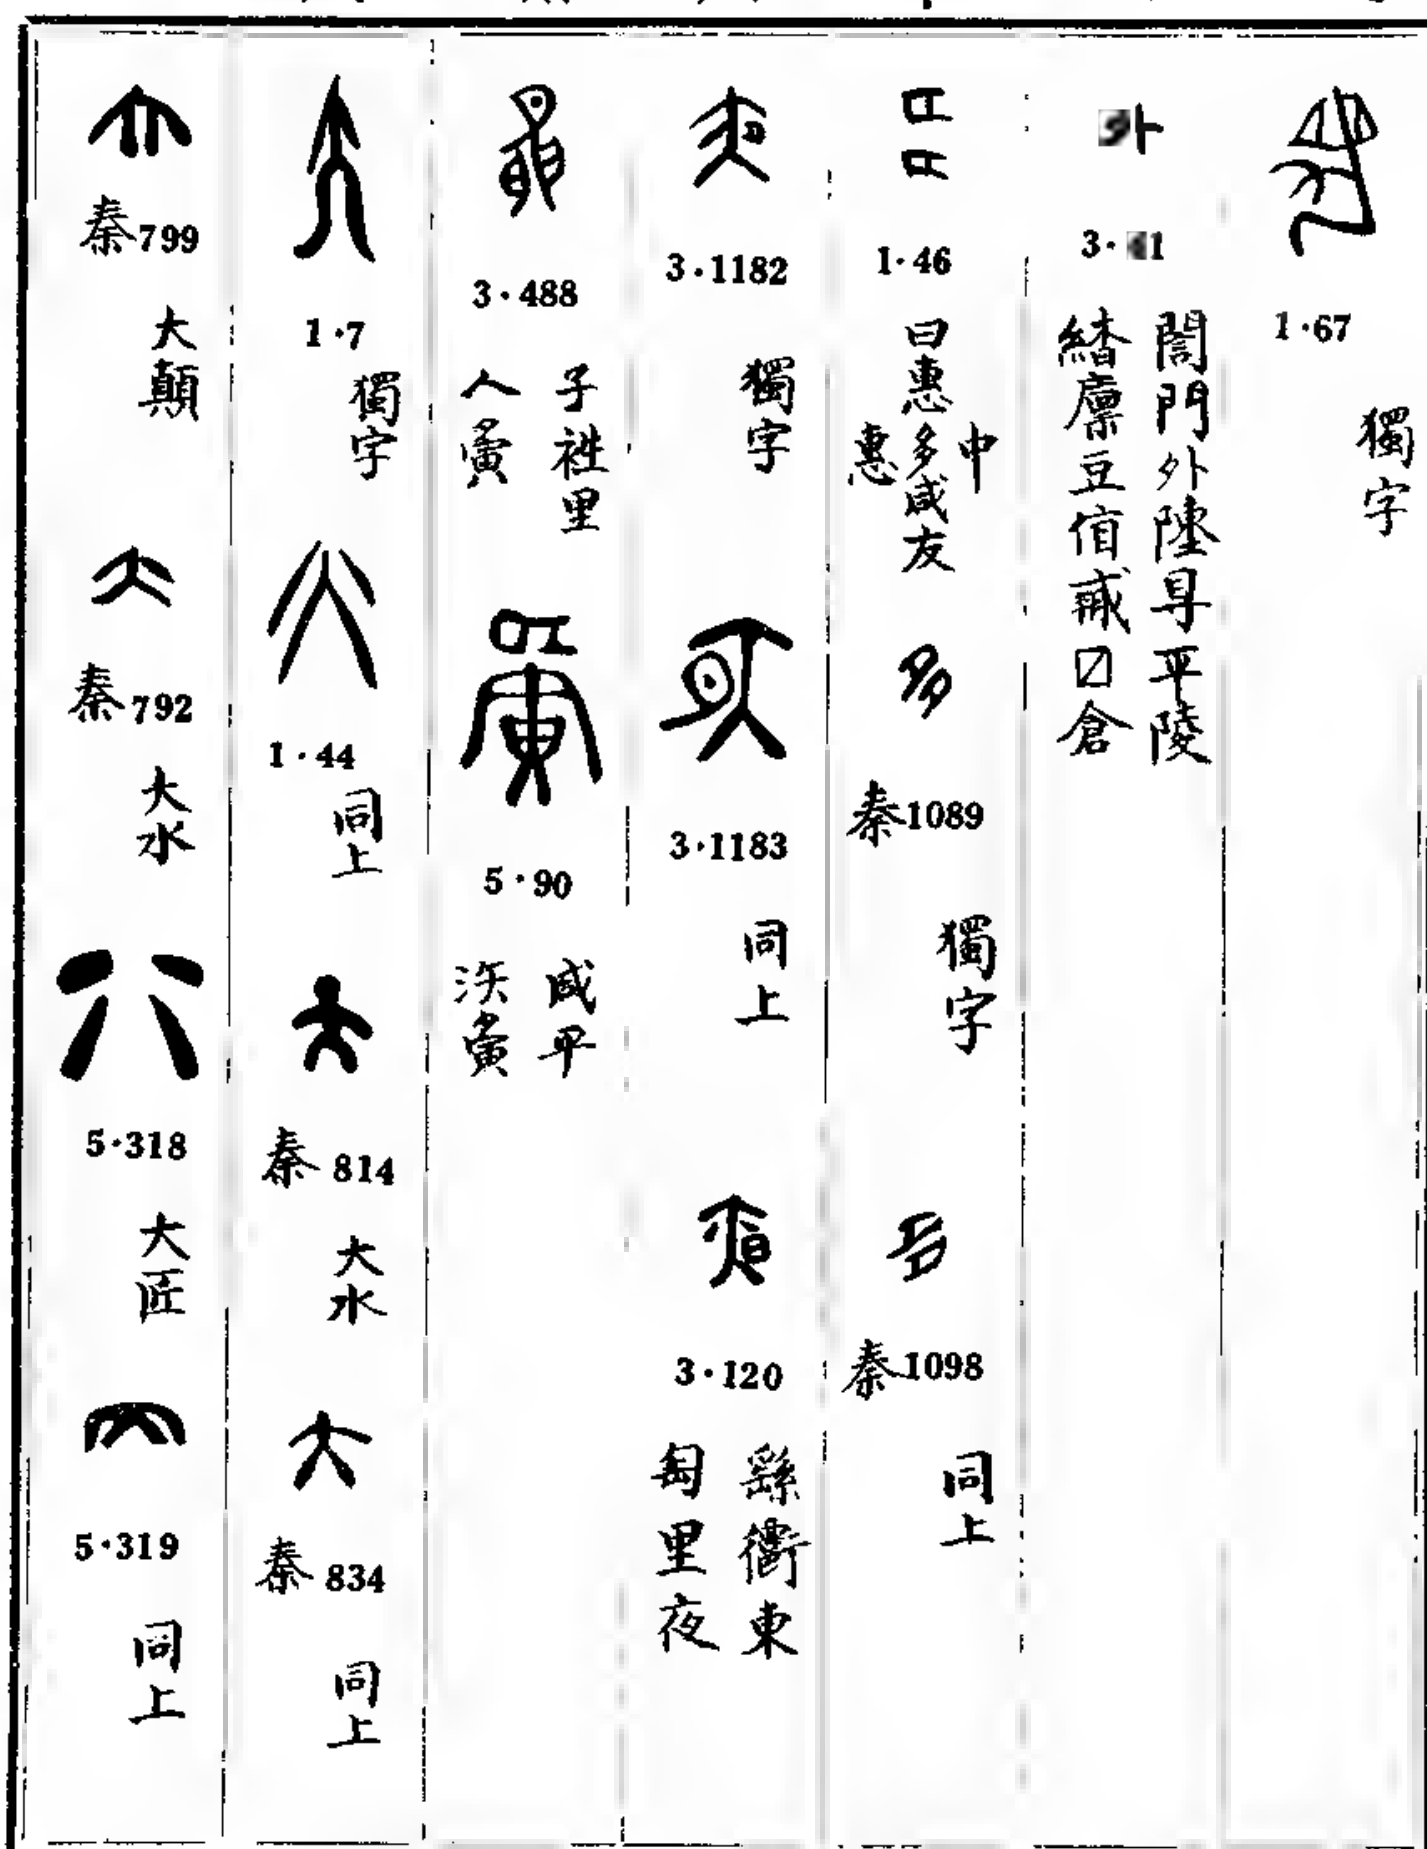 1·67
獨字
外
3·41
誾門外陸䙷平陵
緒廩豆𠊱䘏〼倉
1·46
曰惠多咸友
中
惠
多
秦1089
獨字
多
秦1098
同上
夜
3·1182
獨字
夜
3·1183
同上
夜
3·120
繇衢東
匋里夜
3·488
子𥙿里
人寅
5·90
咸平
沃寅
大
1·7
獨字
大
1·44
同上
大
秦814
大水
大
秦834
同上
大
秦799
大顛
大
秦792
大水
大
5·318
大匠
大
5·319
同上